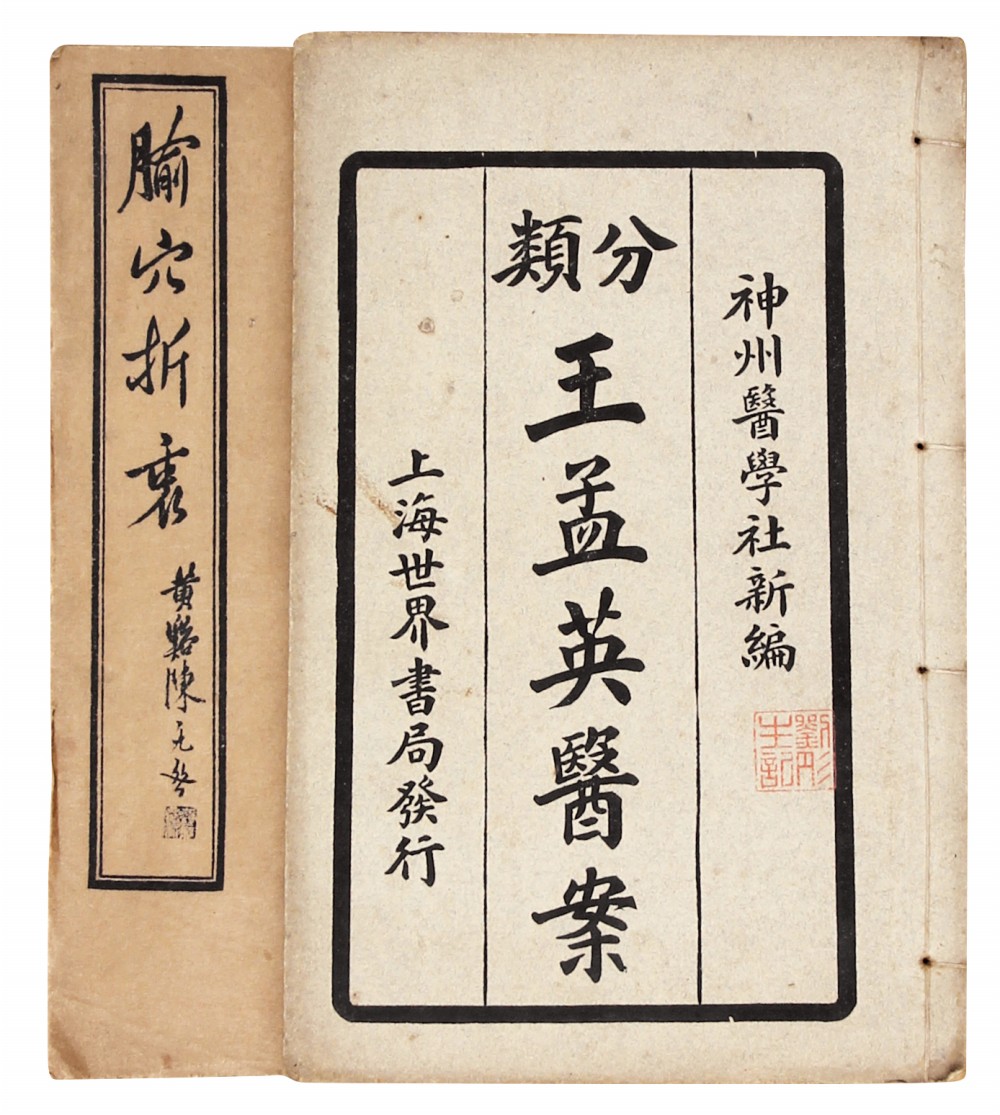 神州醫學社新編
分類
王孟英醫案
上海世界書局發行
腧穴折衷
黄谿陳无咎